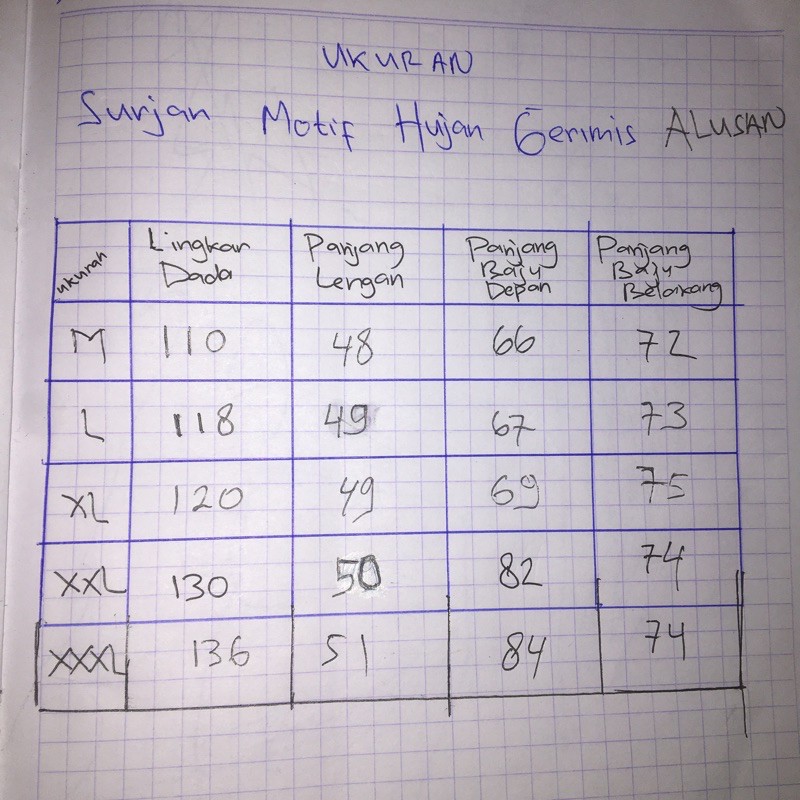 UKURAN
Surjan Motif Hujan Gerimis ALUSAN
ukuran Lingkar Dada Panjang Lengan Panjang Baju Depan Panjang Baju Belakang
M 110 48 66 72
L 118 49 67 73
XL 120 49 69 75
XXL 130 50 82 74
XXXL 136 51 84 74